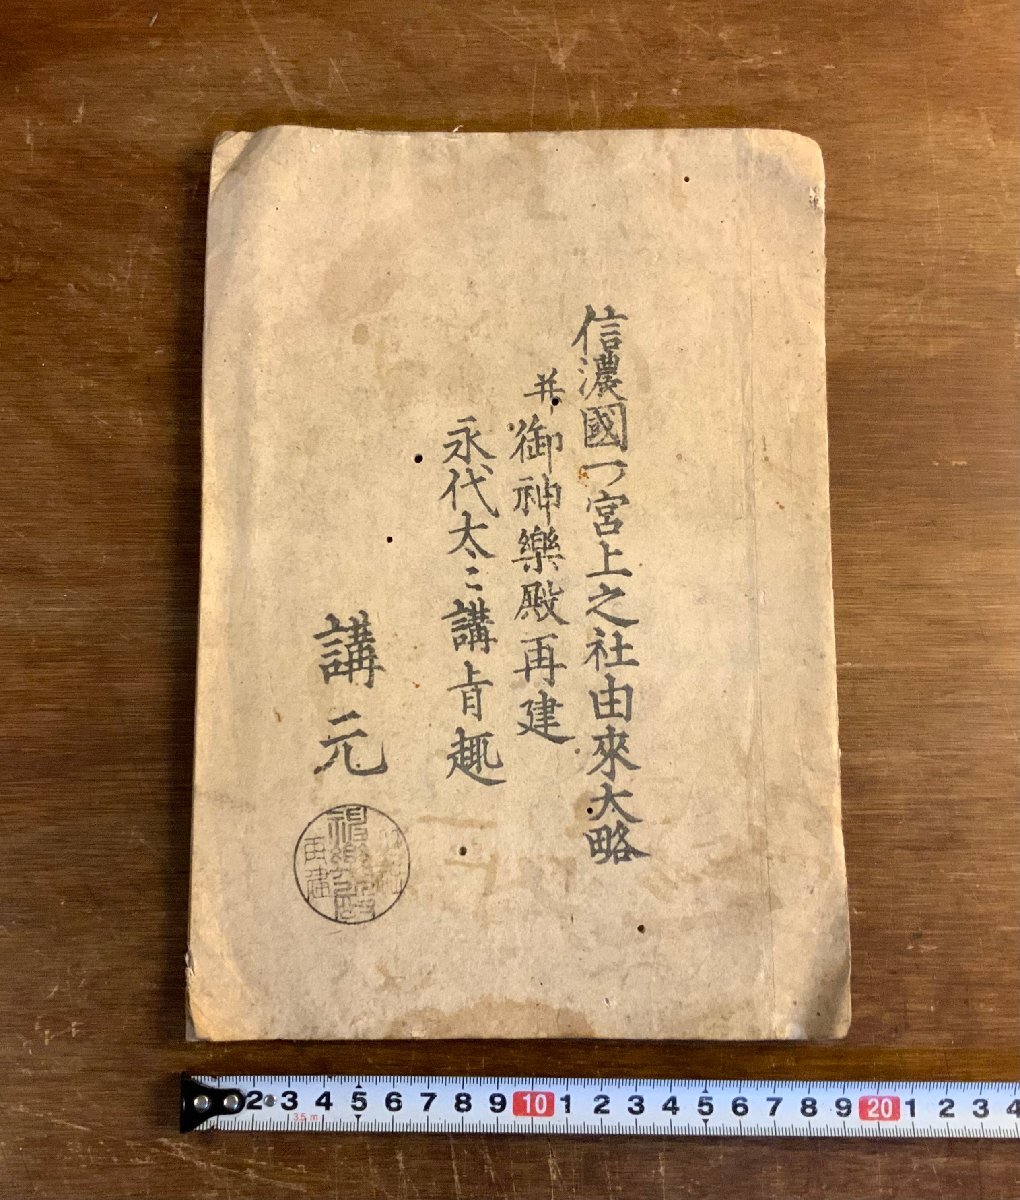 信濃國一宮上之社由來大略
并御神樂殿再建
永代太々講旨趣
講元
再建
2 3 4 5 6 7 8 9 10 1 2 3 4 5 6 7 8 9 20 1 2 3 4
3.5m